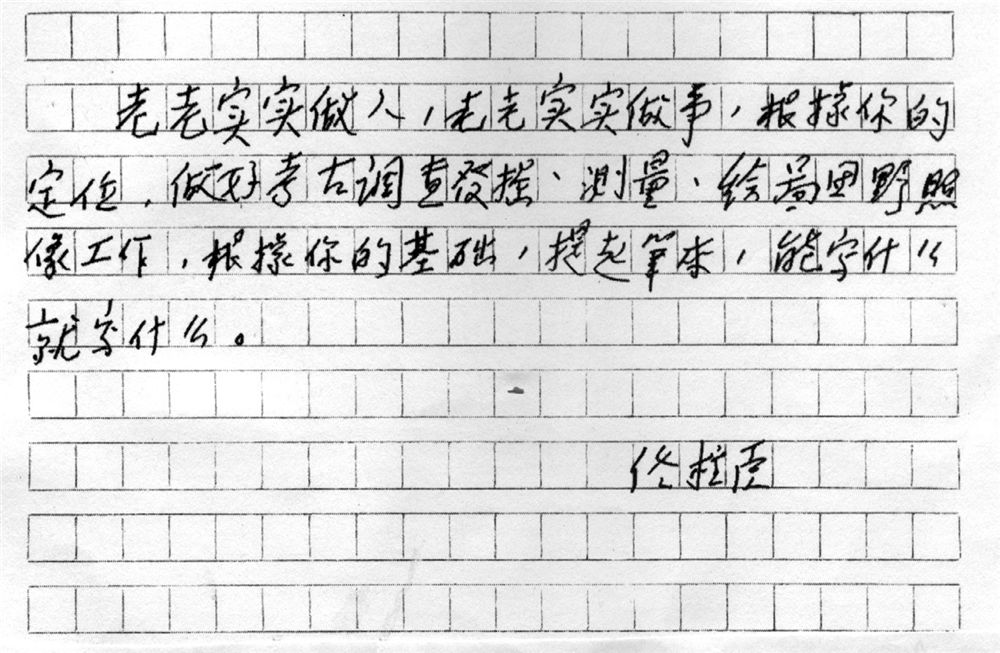 老老实实做人，老老实实做事，根據你的
定位，做好考古调查發掘、测量、绘啚田野照
像工作，根據你的基础，提起筆来，能写什么
就写什么。
佟柱臣